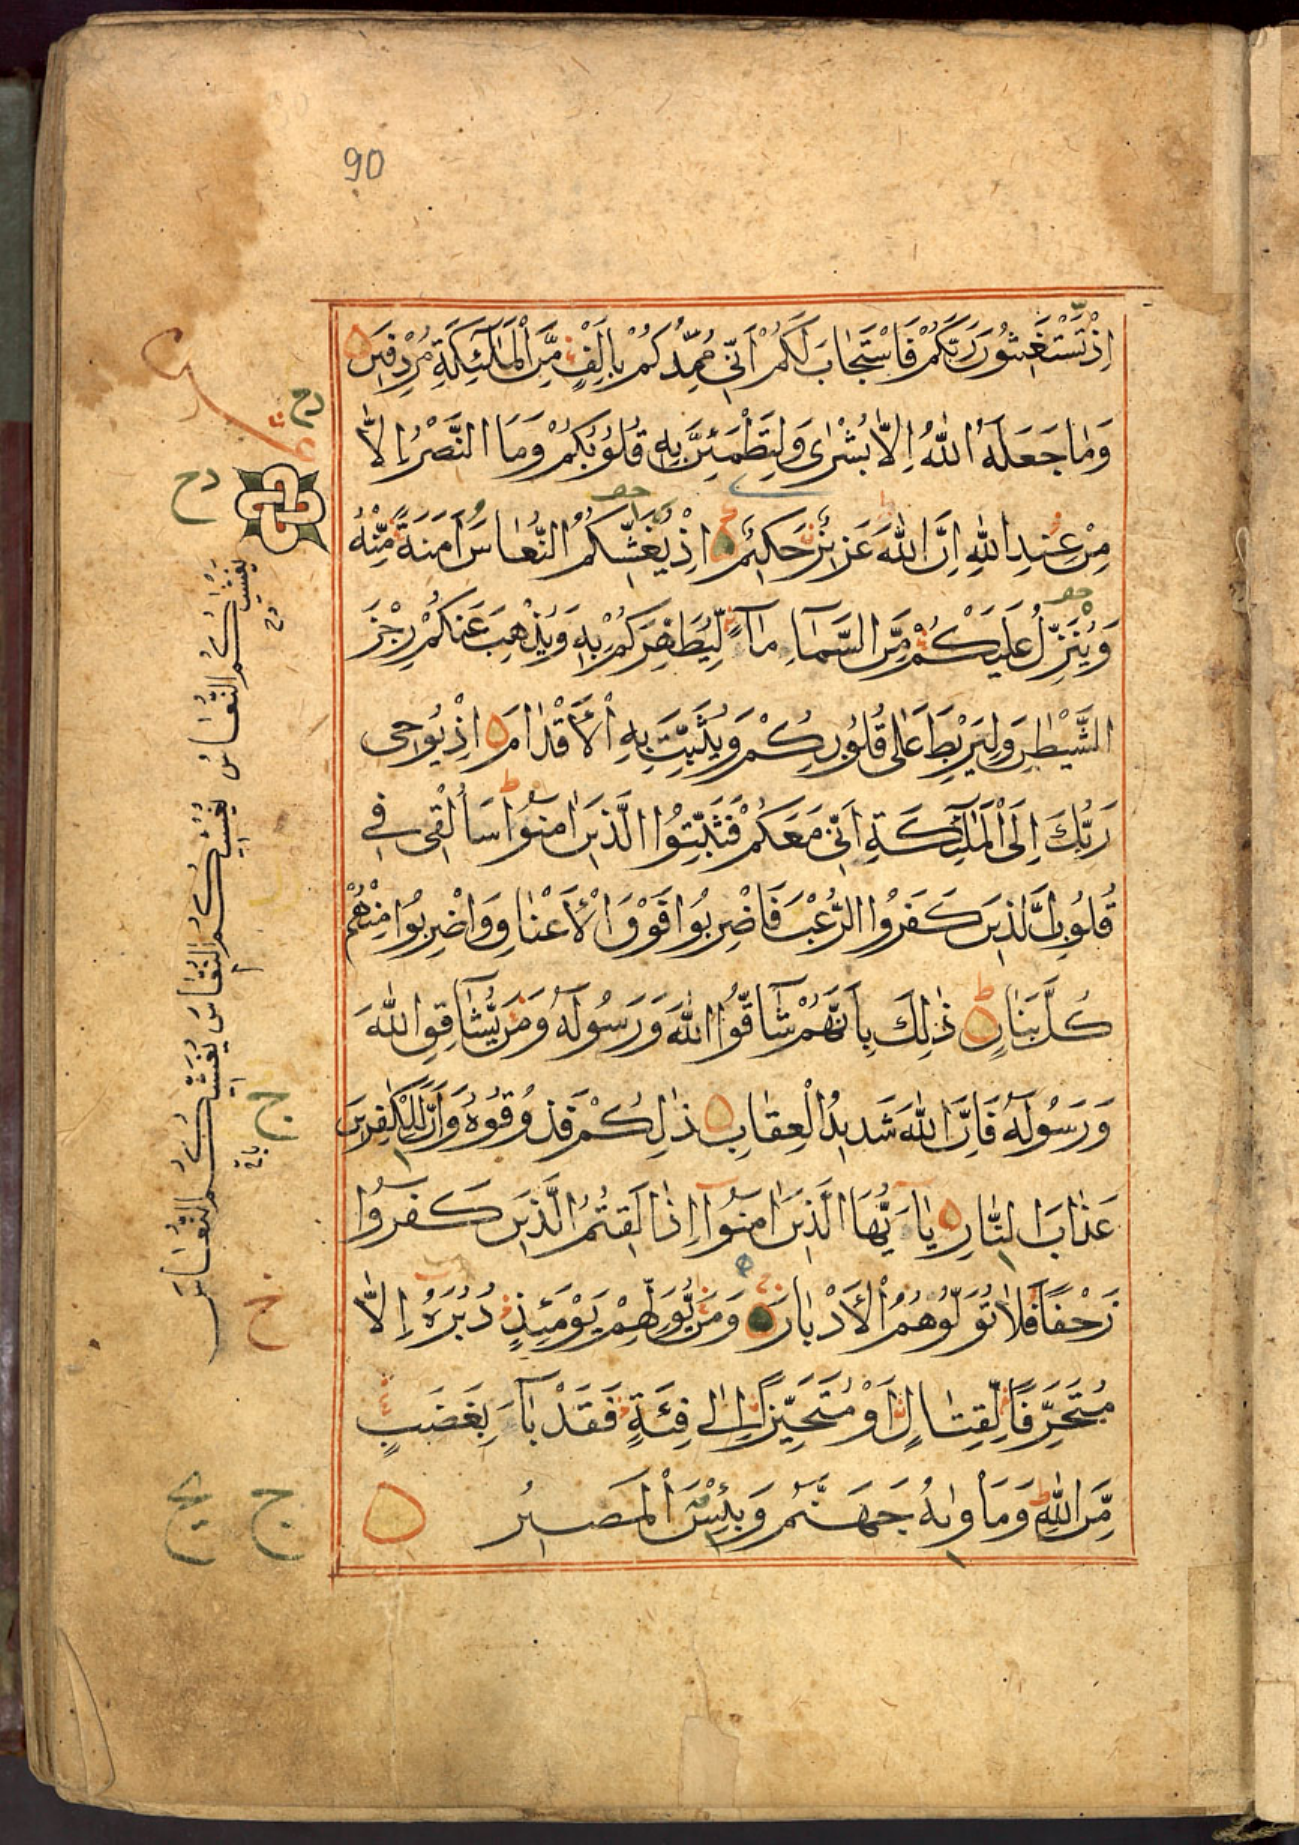 90
اِذْ تَسْتَغِيثُونَ رَبَّكُمْ فَاسْتَجَابَ لَكُمْ اَنِّي مُمِدُّكُمْ بِاَلْفٍ مِنَ الْمَلٰئِكَةِ مُرْدِفِينَ
وَمَا جَعَلَهُ اللّٰهُ اِلَّا بُشْرٰى وَلِتَطْمَئِنَّ بِهِ قُلُوبُكُمْ وَمَا النَّصْرُ اِلَّا
مِنْ عِنْدِ اللّٰهِ اِنَّ اللّٰهَ عَزِيزٌ حَكِيمٌ اِذْ يُغَشِّيكُمُ النُّعَاسَ اَمَنَةً مِنْهُ
وَيُنَزِّلُ عَلَيْكُمْ مِنَ السَّمَآءِ مَآءً لِيُطَهِّرَكُمْ بِهِ وَيُذْهِبَ عَنْكُمْ رِجْزَ
الشَّيْطٰنِ وَلِيَرْبِطَ عَلٰى قُلُوبِكُمْ وَيُثَبِّتَ بِهِ الْاَقْدَامَ اِذْ يُوحِى
رَبُّكَ اِلَى الْمَلٰئِكَةِ اَنِّي مَعَكُمْ فَثَبِّتُوا الَّذِينَ اٰمَنُوا سَاُلْقِى فِي
قُلُوبِ الَّذِينَ كَفَرُوا الرُّعْبَ فَاضْرِبُوا فَوْقَ الْاَعْنَاقِ وَاضْرِبُوا مِنْهُمْ
كُلَّ بَنَانٍ ذٰلِكَ بِاَنَّهُمْ شَآقُّوا اللّٰهَ وَرَسُولَهُ وَمَنْ يُشَاقِقِ اللّٰهَ
وَرَسُولَهُ فَاِنَّ اللّٰهَ شَدِيدُ الْعِقَابِ ذٰلِكُمْ فَذُوقُوهُ وَاَنَّ لِلْكٰفِرِينَ
عَذَابَ النَّارِ يَآ اَيُّهَا الَّذِينَ اٰمَنُوا اِذَا لَقِيتُمُ الَّذِينَ كَفَرُوا
زَحْفًا فَلَا تُوَلُّوهُمُ الْاَدْبَارَ وَمَنْ يُوَلِّهِمْ يَوْمَئِذٍ دُبُرَهُ اِلَّا
مُتَحَرِّفًا لِقِتَالٍ اَوْ مُتَحَيِّزًا اِلٰى فِئَةٍ فَقَدْ بَآءَ بِغَضَبٍ
مِنَ اللّٰهِ وَمَأْوٰيهُ جَهَنَّمُ وَبِئْسَ الْمَصِيرُ
يغشيكم النعاس يغشيكم النعاس يغشيكم النعاس